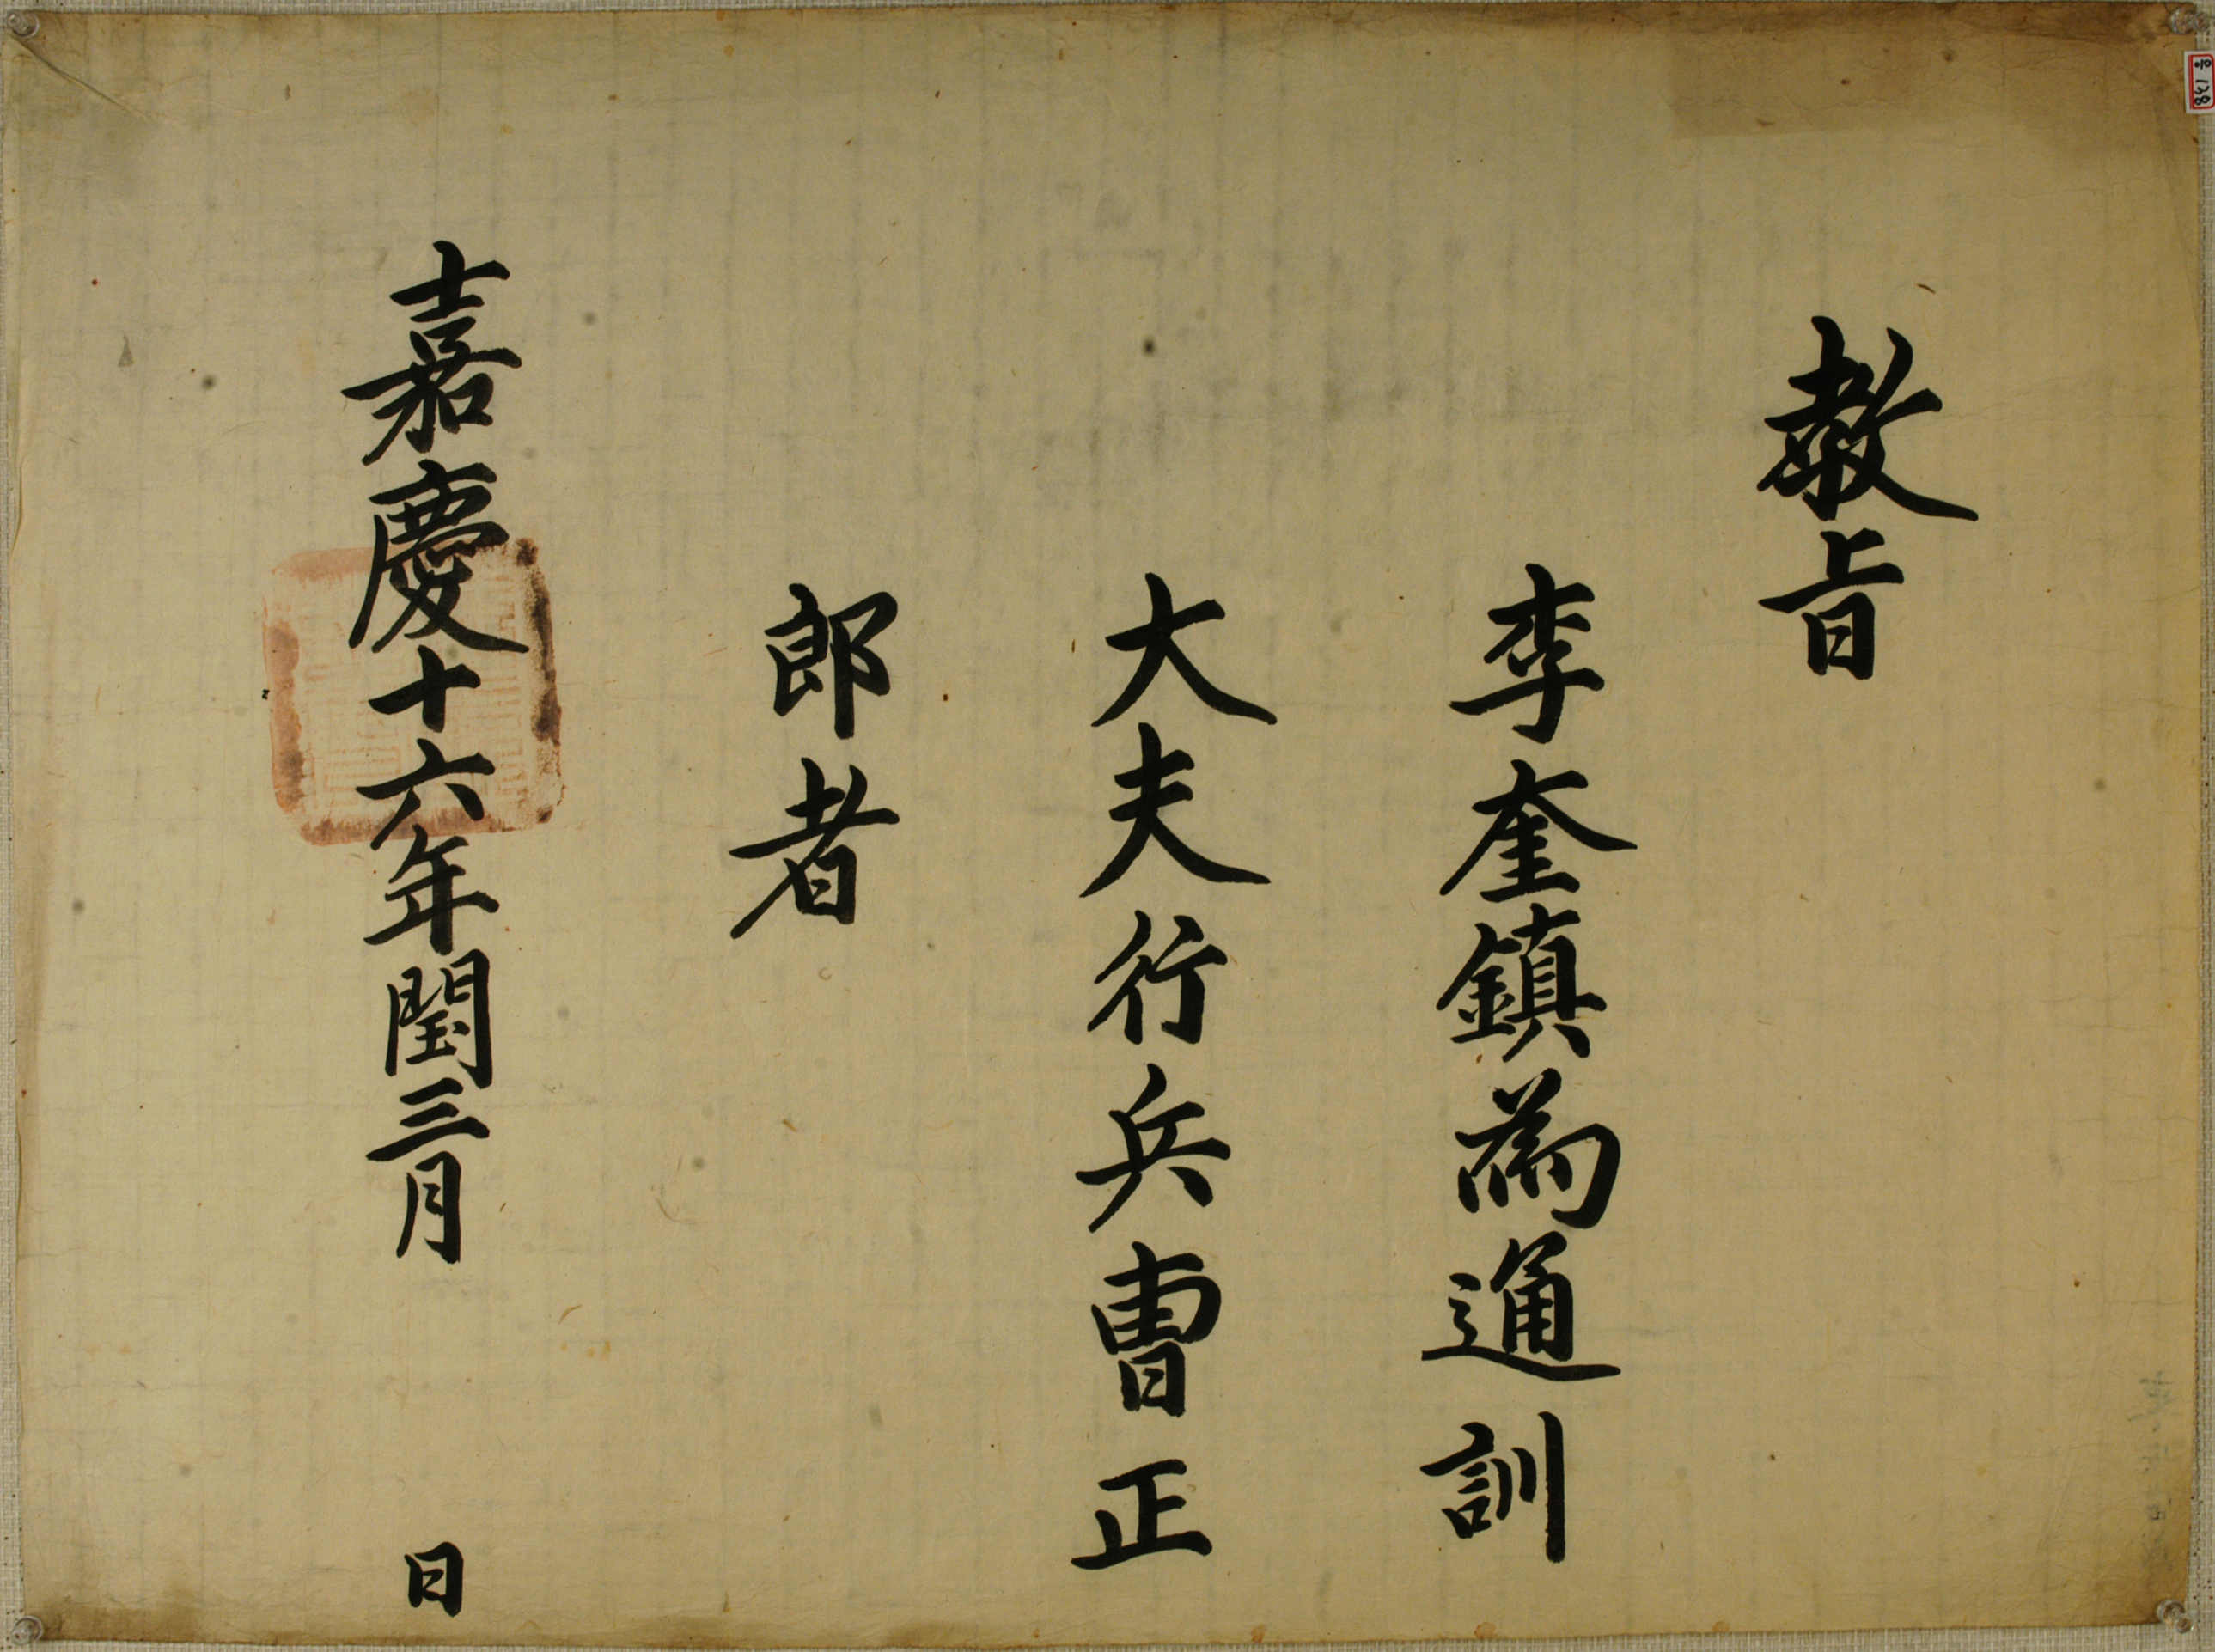 敎旨
李奎鎭為通訓
大夫行兵曺正
郎者
嘉慶十六年閏三月 日
138